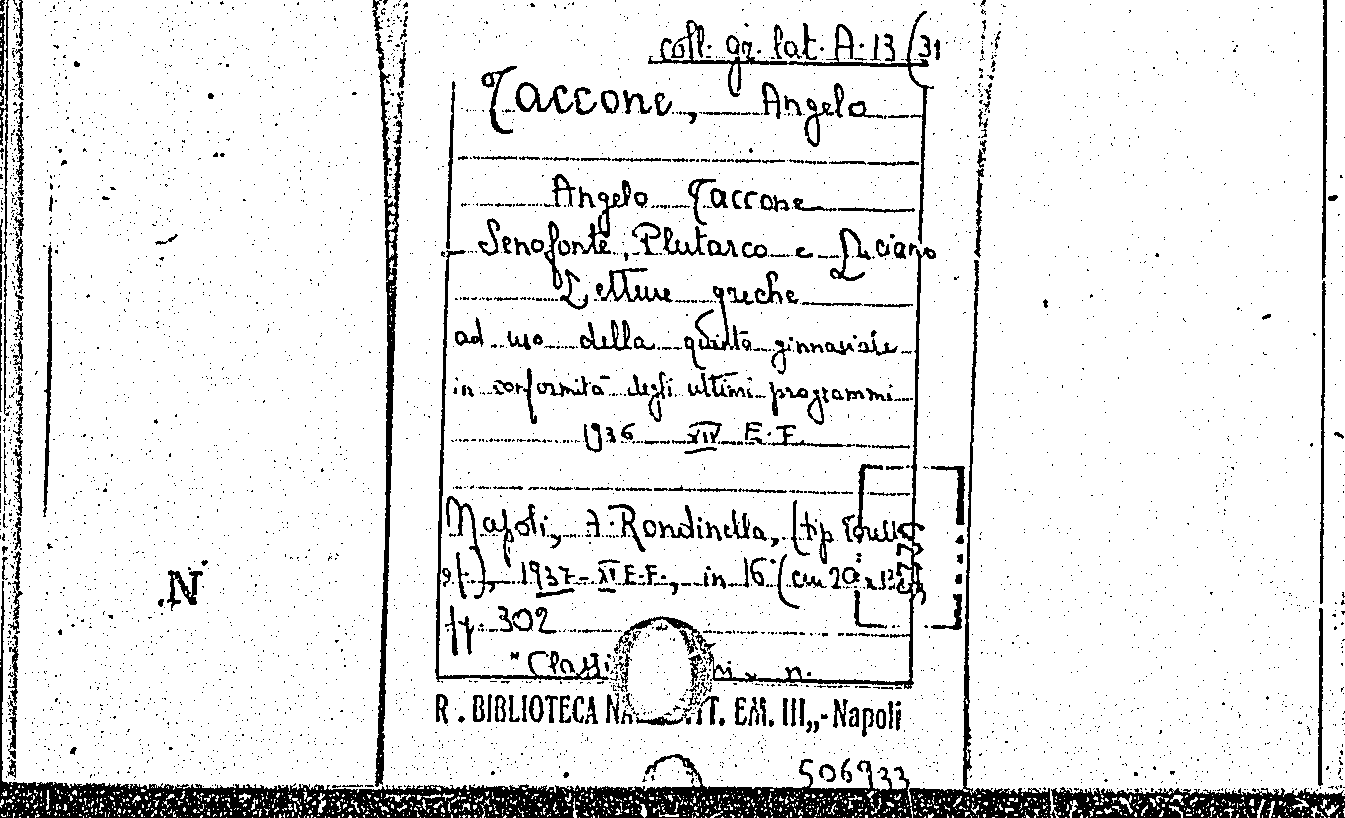 coll. gr. lat. A. 13 (31
Taccone, Angelo
Angelo Taccone
Senofonte, Plutarco e Luciano
Letture greche
ad uso della quinta ginnasiale
in conformità degli ultimi programmi
1936 XIV E. F.
Napoli, A. Rondinella, (tip
1937 - E.F., in 16° (cm 20
pp. 302
"Classi n.
R. BIBLIOTECA T. EM. III„-Napoli
506933
.N